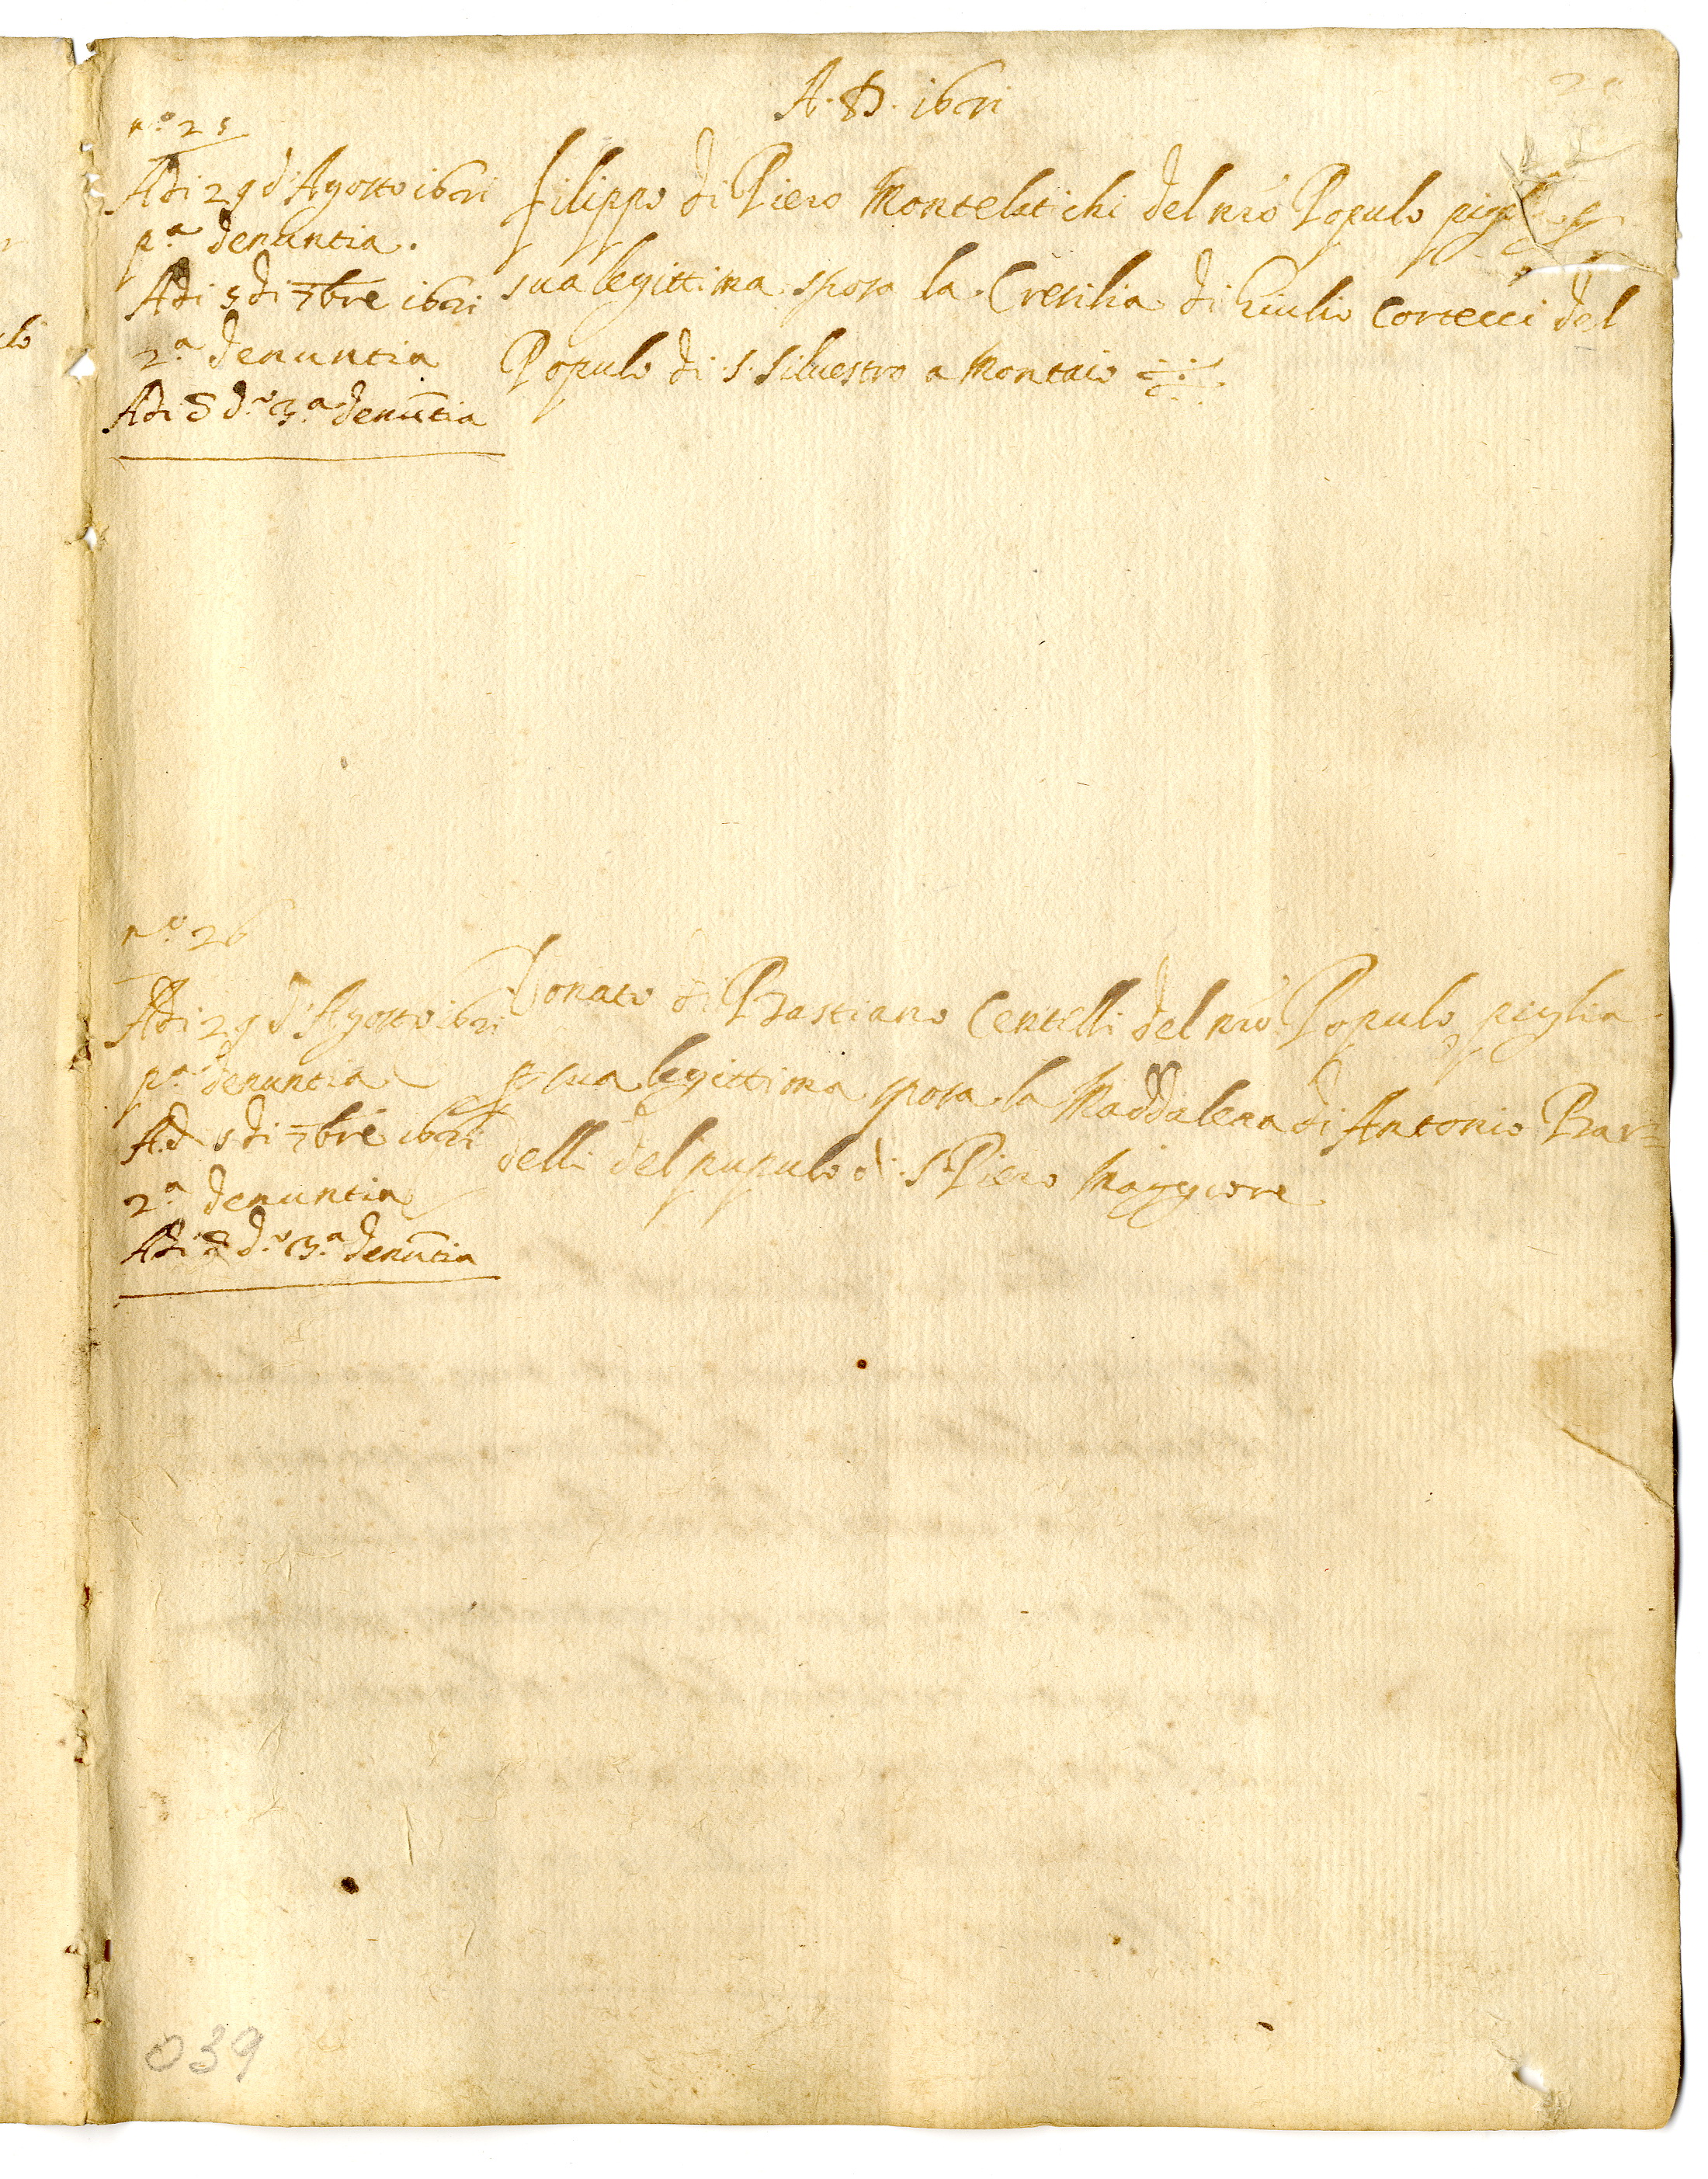 A. D. 1621
n.o 25
Adi 29 d'Agosto 1621
p.a denuntia.
Adi 5 di 7bre 1621
2.a denuntia
Adi 8 d.o 3.a denūtia
filippo di Piero Montelatichi del nrõ Populo
sua legittima sposa la Cresilia di Giulio Cortecci del
Populo di S. Silvestro a Montaio
n.o 26
Adi 29 d'Agosto 1621
p.a denuntia
Adi 5 di 7bre 1621
2.a denuntia
Adi 8 d.o 3.a denūtia
Donato di Bastiano Centelli del nrõ Populo piglia
p sua legittima sposa la Maddalena di Antonio Bar=
delli del pupulo di S. Piero Maggiore
039